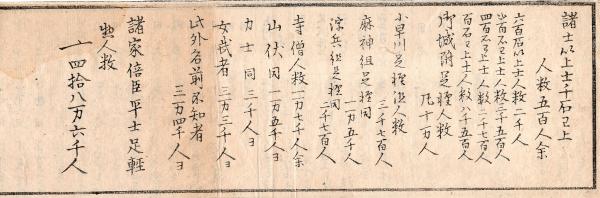 諸士以上士千石已上
人数五百人余
六百石以上士人数二千人
五百石已上士人数三千五百人
四百石已上士人数二千七百人
百石已上士人数八千五百人
御城附足軽人数
凡十万人
小早川足軽組人数
三千七百人
麻神組足軽同
一万五千人
深兵組足軽同
二千七百人
寺僧人数一万七千人余
山伏同一万五千人ヨ
力士同三千人ヨ
女武者三万三千人ヨ
此外名前不知者
三万四千人ヨ
諸家倍臣平士足軽
惣人数
〆四拾八万六千人